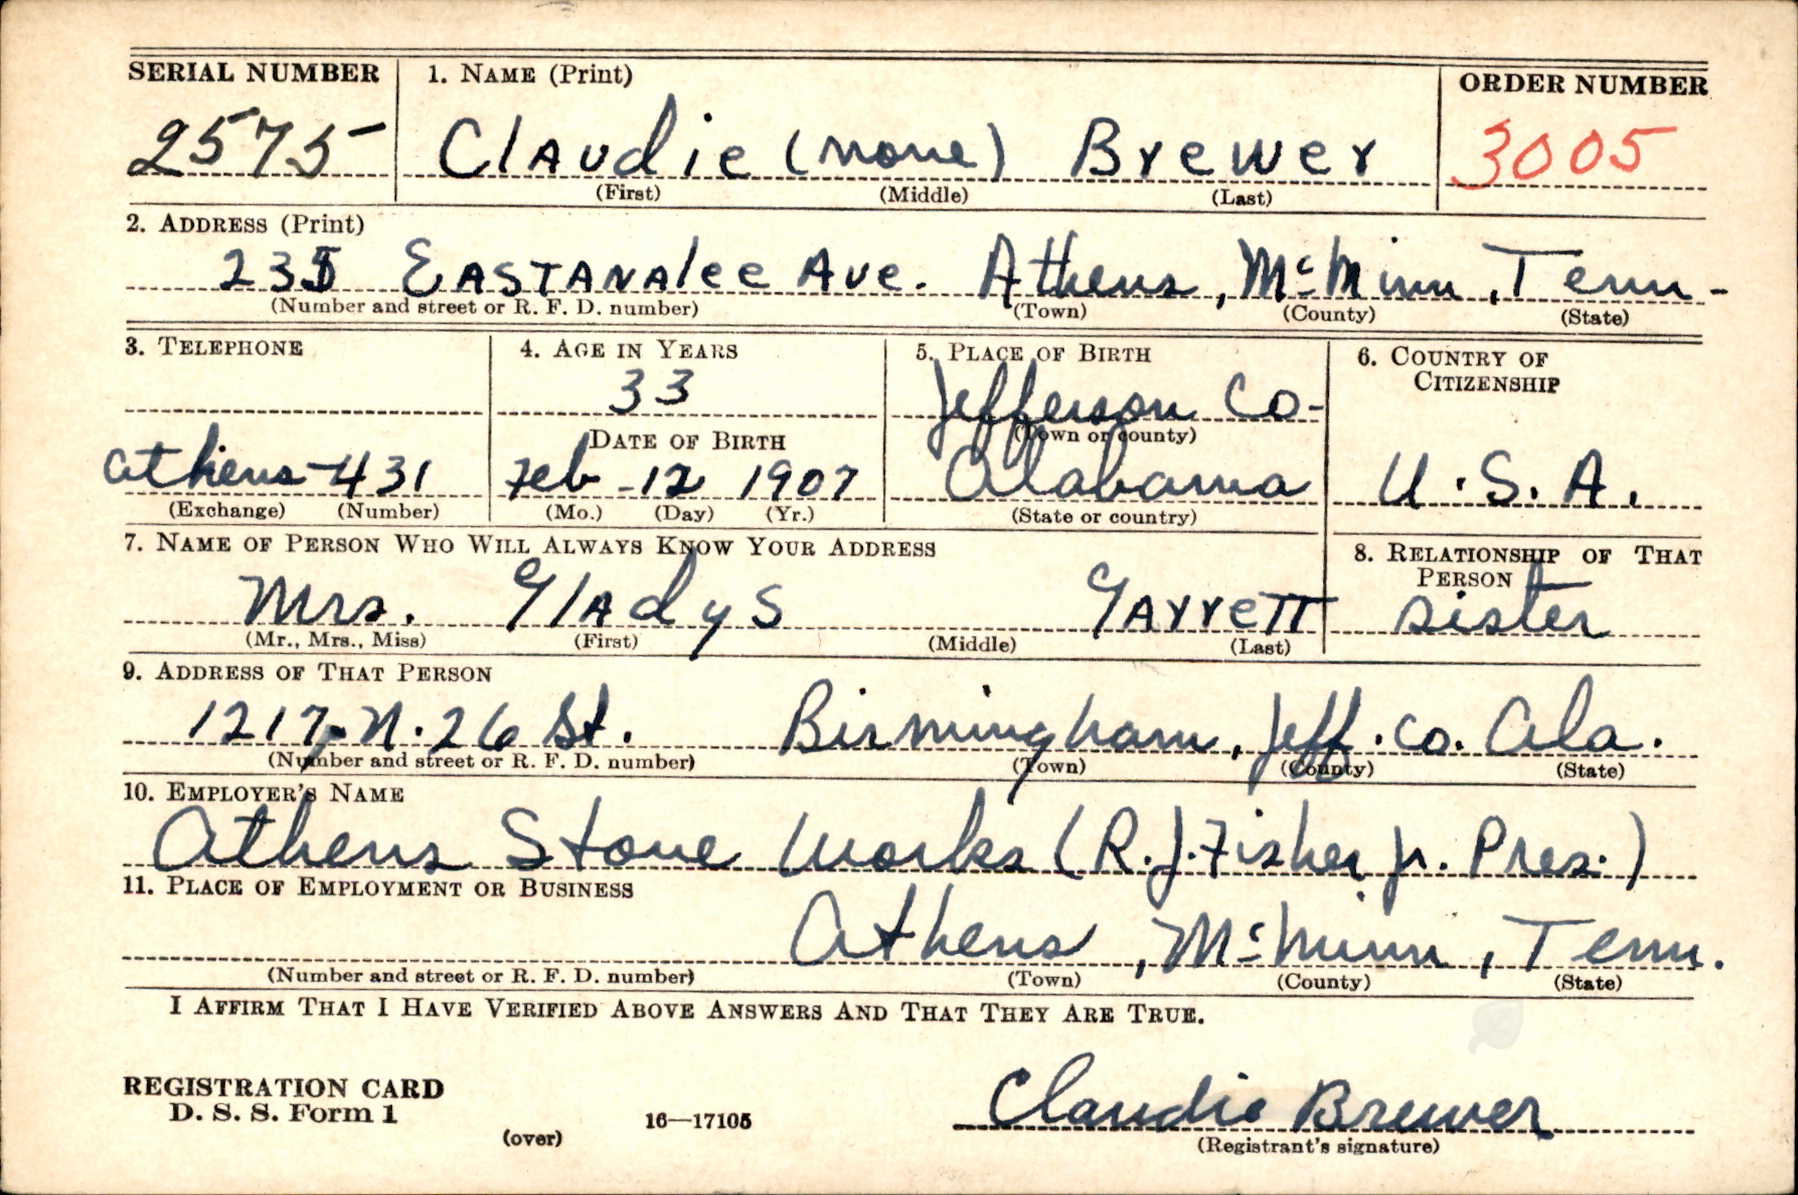 SERIAL NUMBER 1. NAME (Print) ORDER NUMBER
2575 Claudie (none) Brewer 3005
(First) (Middle) (Last)
2. ADDRESS (Print)
235 Eastanalee Ave. Athens, McMinn, Tenn-
(Number and street or R. F. D. number) (Town) (County) (State)
3. TELEPHONE 4. AGE IN YEARS 5. PLACE OF BIRTH 6. COUNTRY OF CITIZENSHIP
33 Jefferson Co-
DATE OF BIRTH (Town or county)
Athens-431 Feb-12 1907 Alabama U.S.A.
(Exchange) (Number) (Mo.) (Day) (Yr.) (State or country)
7. NAME OF PERSON WHO WILL ALWAYS KNOW YOUR ADDRESS 8. RELATIONSHIP OF THAT PERSON
Mrs. Gladys Garrett sister
(Mr., Mrs., Miss) (First) (Middle) (Last)
9. ADDRESS OF THAT PERSON
1217-N.26 St. Birmingham, Jeff. Co. Ala.
(Number and street or R. F. D. number) (Town) (County) (State)
10. EMPLOYER'S NAME
Athens Stove Works (R.J. Fisher Jr. Pres.)
11. PLACE OF EMPLOYMENT OR BUSINESS
Athens, McMinn, Tenn.
(Number and street or R. F. D. number) (Town) (County) (State)
I AFFIRM THAT I HAVE VERIFIED ABOVE ANSWERS AND THAT THEY ARE TRUE.
REGISTRATION CARD
D. S. S. Form 1
(over) 16—17105
Claudie Brewer
(Registrant's signature)